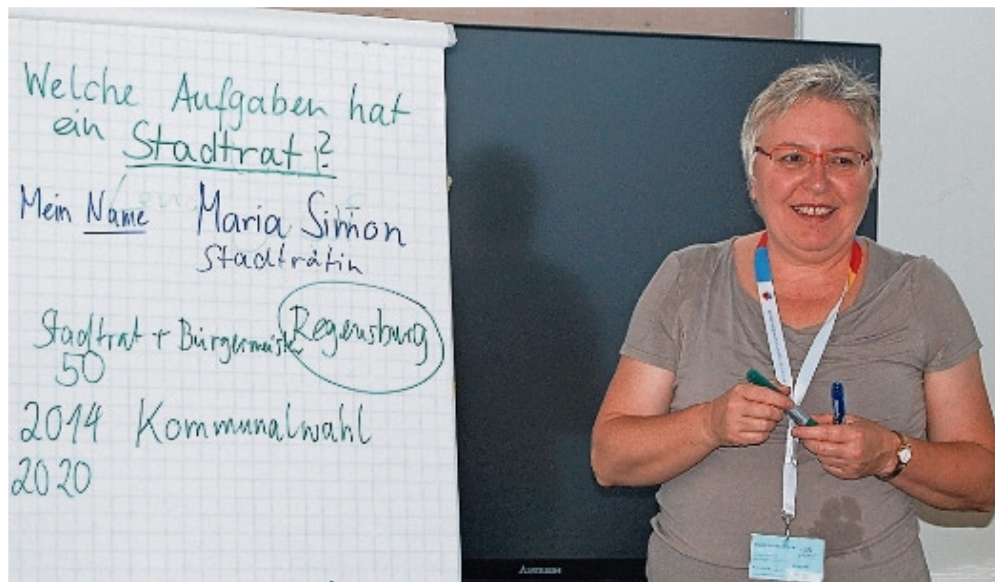 Welche Aufgaben hat
ein Stadtrat?
Mein Name Maria Simon
Stadträtin
Stadtrat + Bürgermeister Regensburg
50
2014 Kommunalwahl
2020